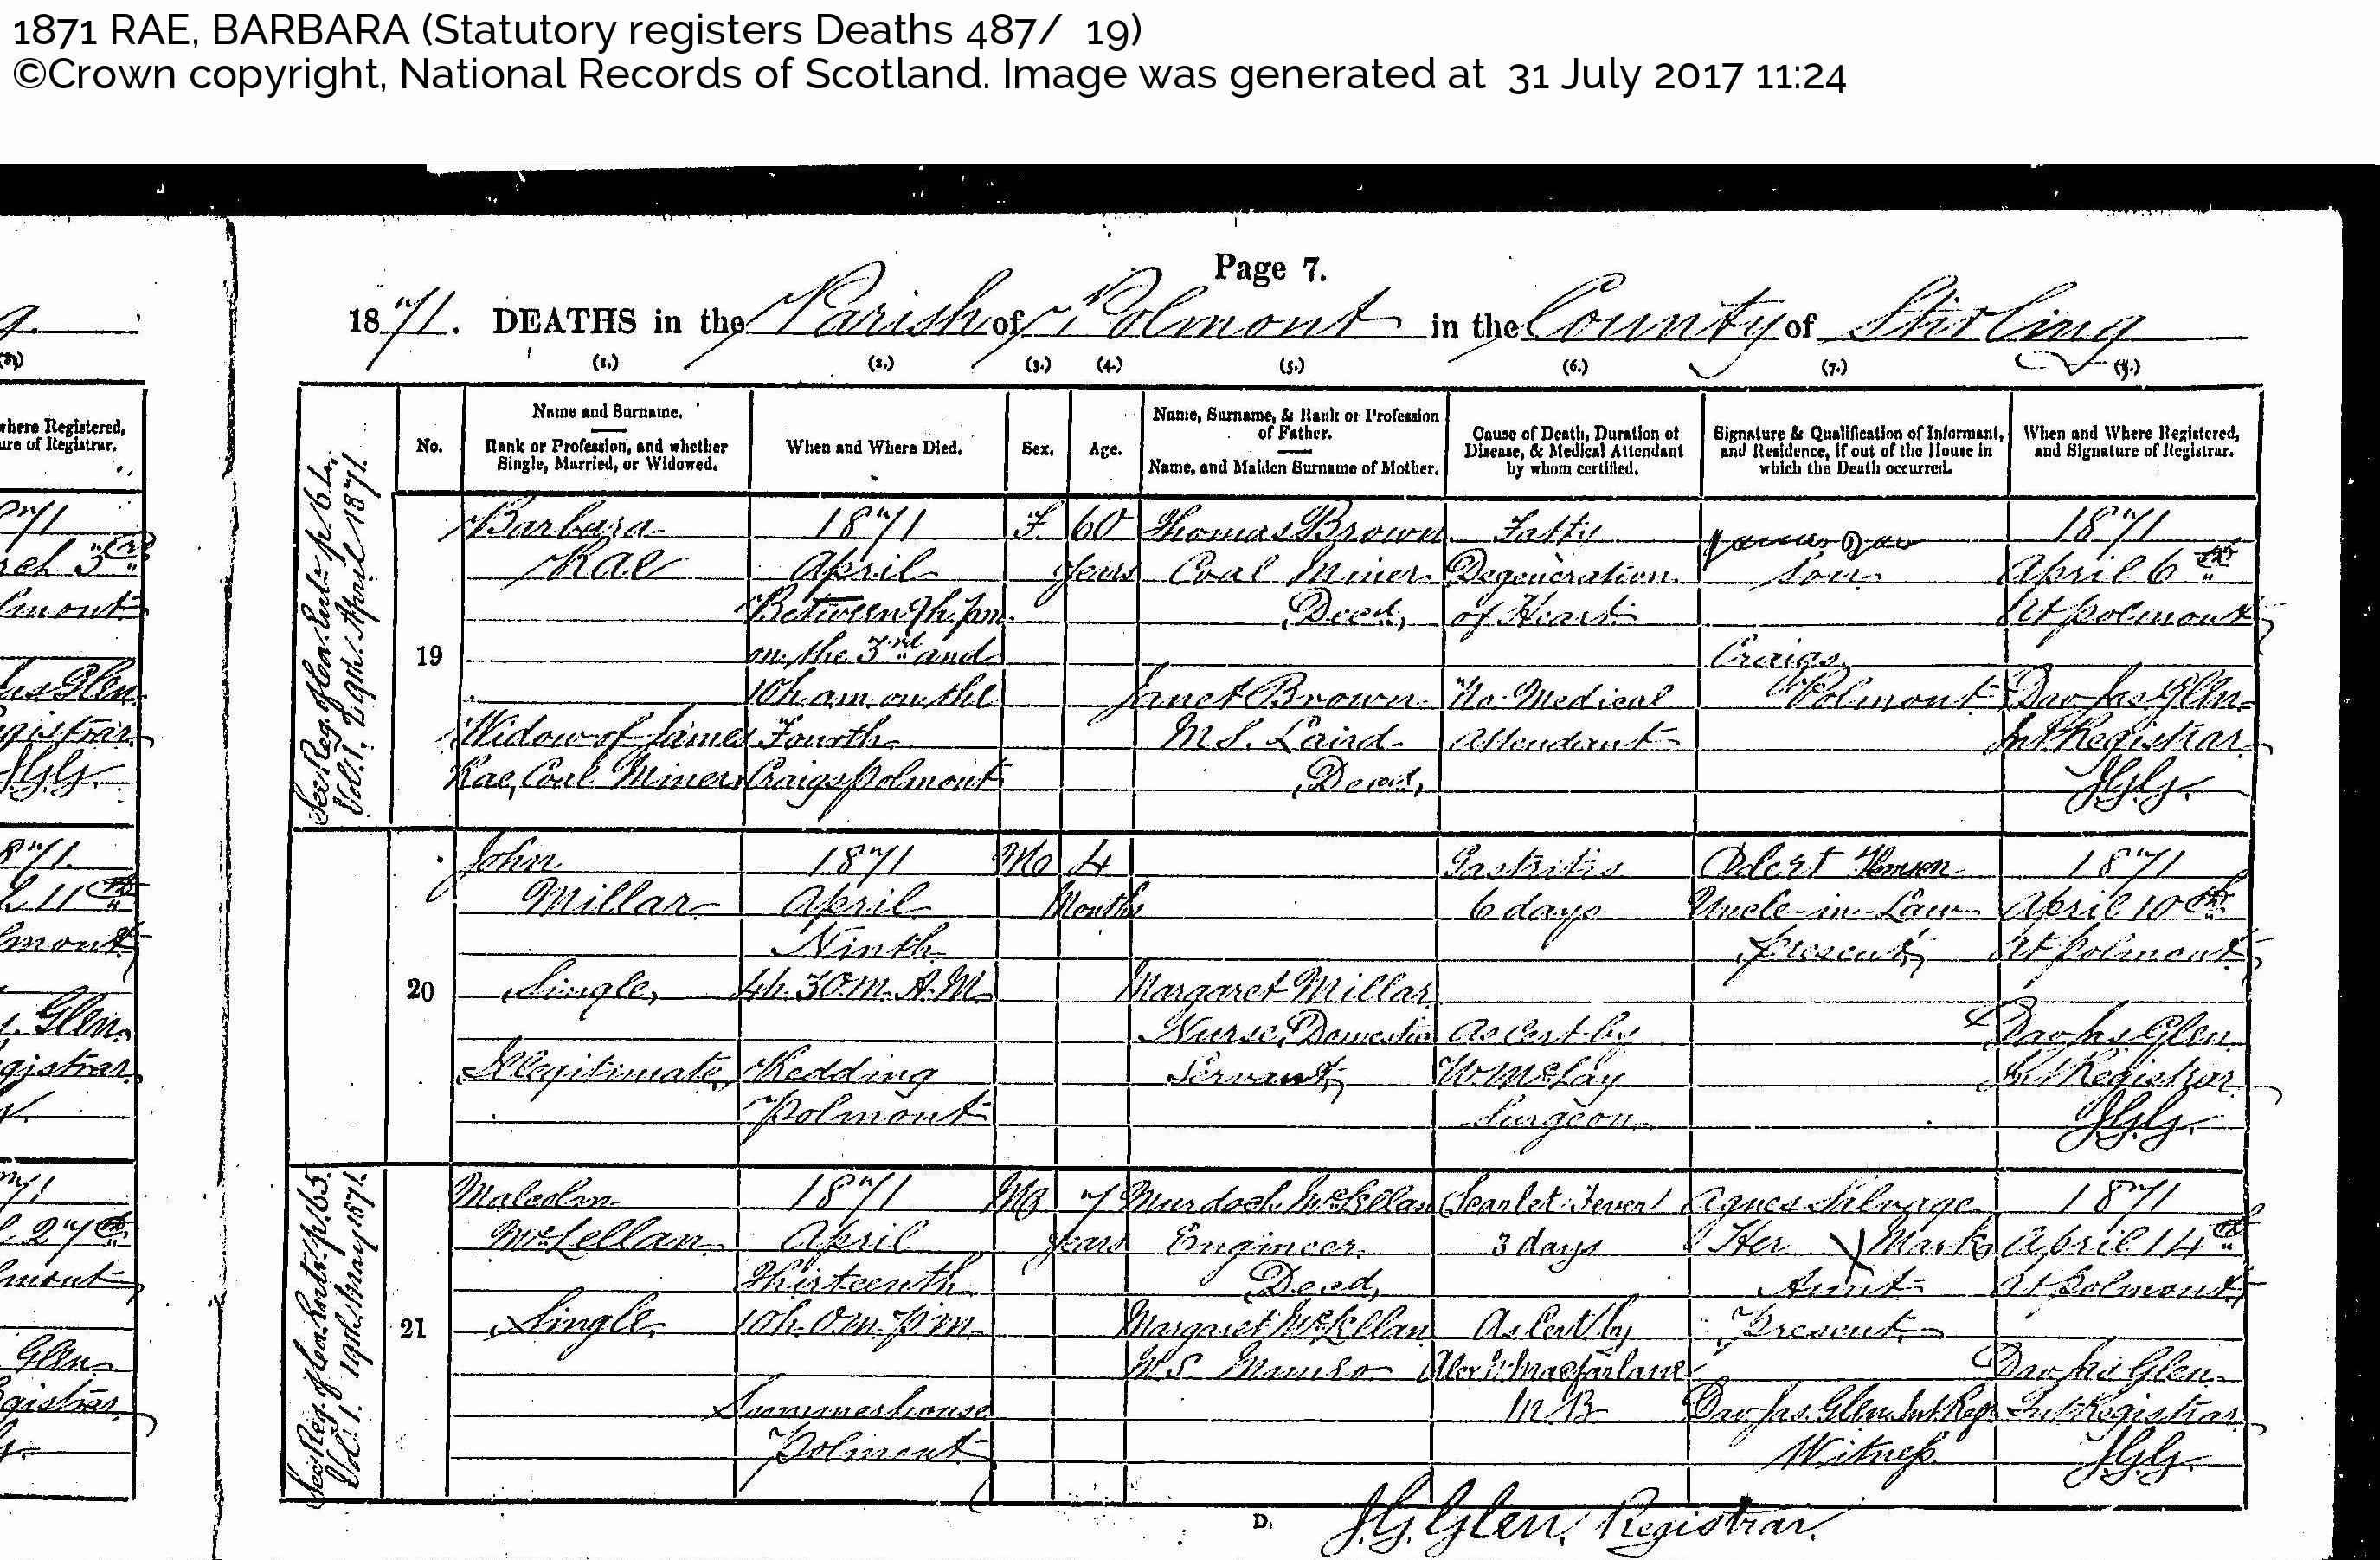 1871 RAE, BARBARA (Statutory registers Deaths 487/ 19)
©Crown copyright, National Records of Scotland. Image was generated at 31 July 2017 11:24
Page 7.
1871. DEATHS in the Parish of Polmont in the County of Stirling
(1.) (2.) (3.) (4.) (5.) (6.) (7.)
No.
Name and Surname.
Rank or Profession, and whether
Single, Married, or Widowed.
When and Where Died.
Sex.
Age.
Name, Surname, & Rank or Profession
of Father.
Name, and Maiden Surname of Mother.
Cause of Death, Duration of
Disease, & Medical Attendant
by whom certified.
Signature & Qualification of Informant,
and Residence, if out of the House in
which the Death occurred.
When and Where Registered,
and Signature of Registrar.
Vol. 1. 29th April 1871.
19
Barbara
Rae
Widow of James
Rae, Coal Miner
1871
April
Between 9h. pm.
on the 3rd and
10h am on the
Fourth
Craigs Polmont
F.
60
years
Thomas Brown
Coal Miner
Deced,
Janet Brown
M.S. Laird
Deced,
Fatty
Degeneration
of Heart
No Medical
Attendant
son
Craigs
Polmont
1871
April 6th
At Polmont
Dav Jas. Glen
Int Registrar
J.G.G.
20
John
Millar
Single,
Illegitimate,
1871
April
Ninth
4h. 30m. A.M.
Redding
Polmont
M
4
Months
Margaret Millar
Nurse, Domestic
Servant,
Gastritis
6 days
As Cert by
W McLay
Surgeon
Uncle-in-Law
present,
1871
April 10th
At Polmont
Dav Jas Glen
Int Registrar
J.G.G.
Vol. 1. 19th May 1871.
21
Malcolm
McLellan
Single
1871
April
Thirteenth
10h. 0m. p.m.
Summerhouse
Polmont
M
7
years
Murdoch McLellan
Engineer
Deced,
Margaret McLellan
M.S. Munro
Scarlet Fever
3 days
As Cert by
Macfarlane
M B
Agnes
Her X Mark
Aunt
Present
Dav Jas. Glen Int Regr
Witness
1871
April 14th
At Polmont
Dav Jas Glen
Int Registrar
J.G.G.
D.
J.G. Glen, Registrar.